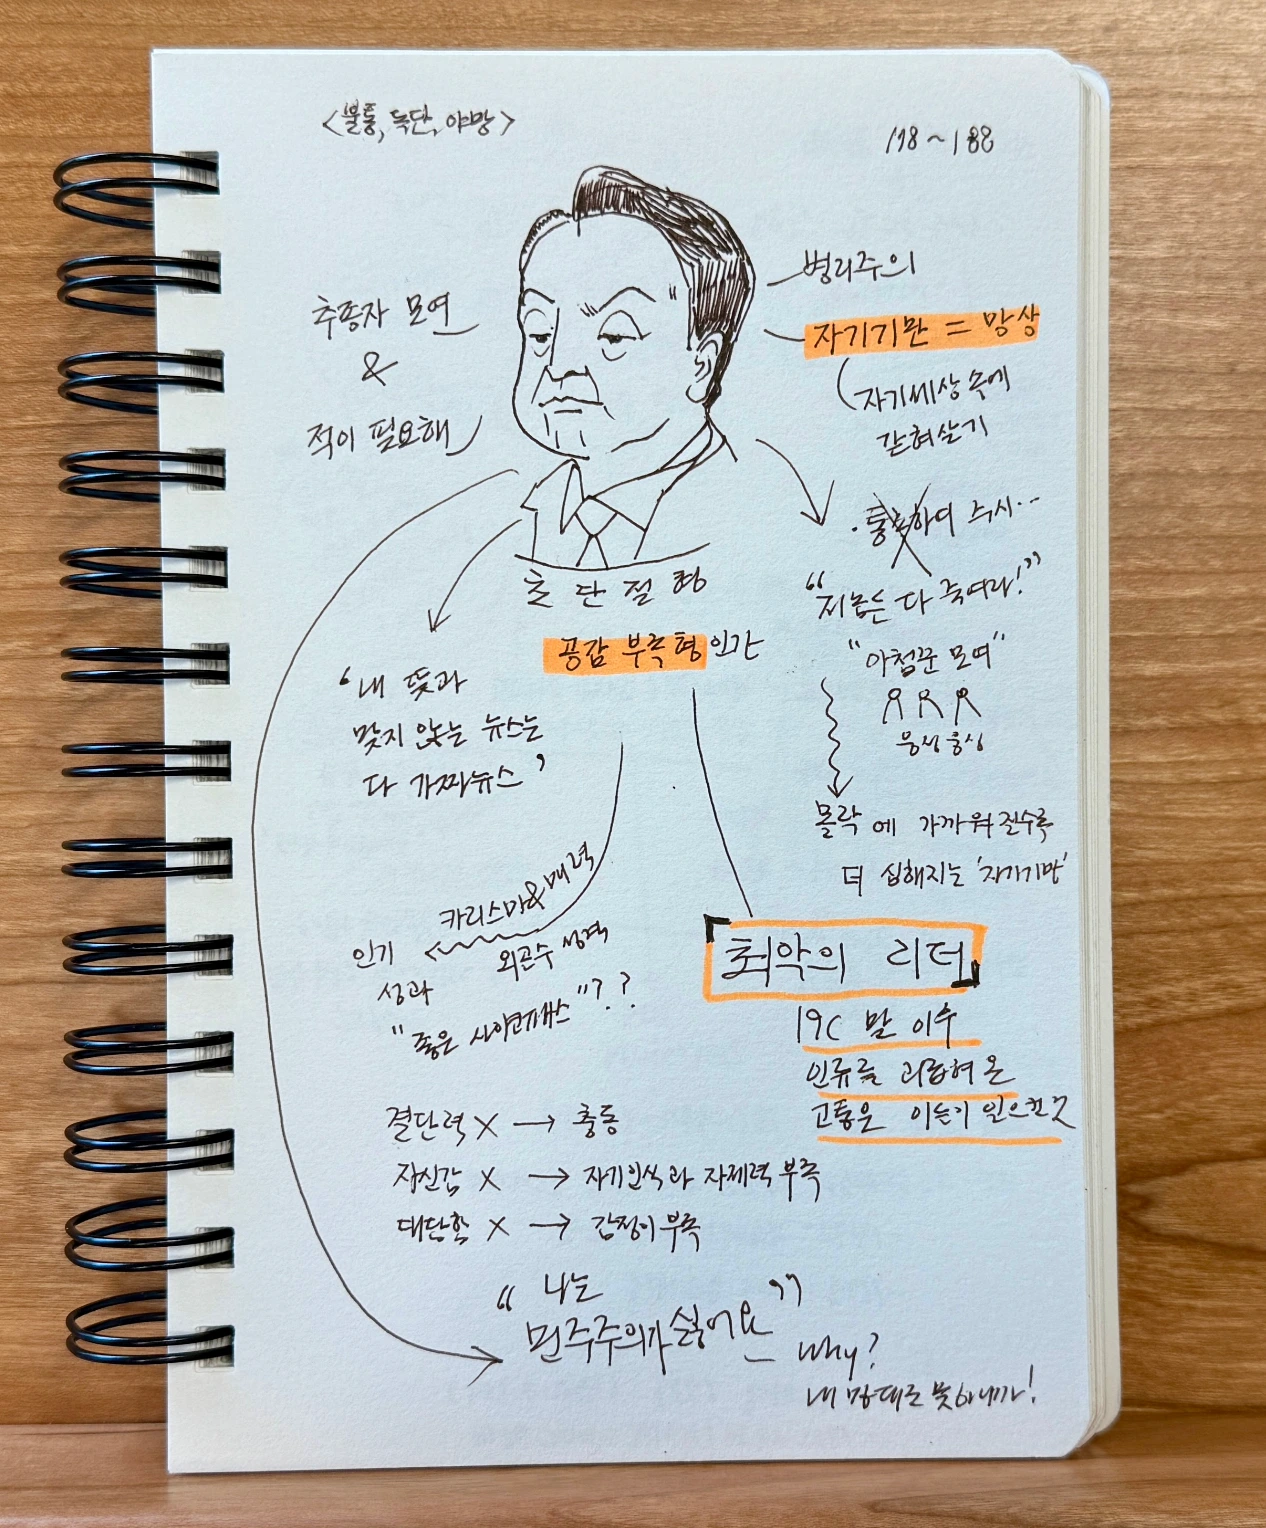 <불통, 독단, 야망>
178~188
추종자 모여
&
적이 필요해
병리주의
자기기만 = 망상
자기세상 속에
갇혀살기
초단절형
공감 부족형 인간
"저놈은 다 죽여라!"
"아첨꾼 모여"
웅성웅성
몰락에 가까워질수록
더 심해지는 '자기기만'
'내 뜻과
맞지 않는 뉴스는
다 가짜뉴스'
카리스마&매력
인기
성과
외곤수 성격
"좋은 사이코패스"??
최악의 리더
19C 말 이후
인류를 괴롭혀 온
고통은 이들이 원으킨 것
결단력 X → 충동
자신감 X → 자기인식과 자제력 부족
대담함 X → 감정이 부족
"나는
민주주의가 싫어요"
Why?
내 맘대로 못하니까!